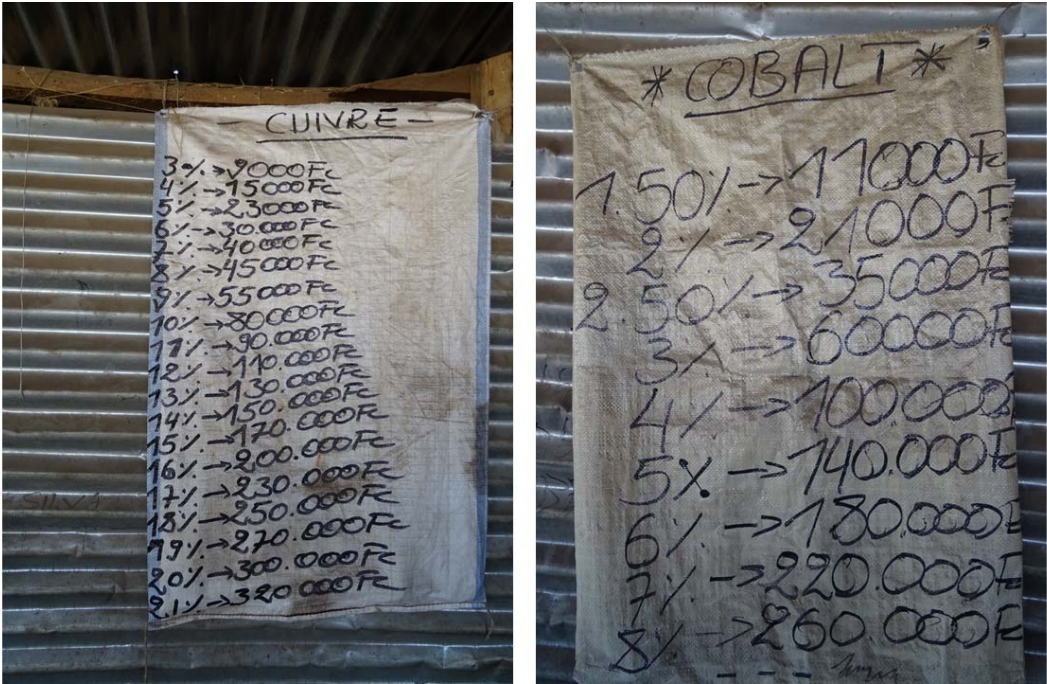 - CUIVRE -
3%→9000Fc
4%→15000Fc
5%→23000Fc
6%→30.000Fc
7%→40000Fc
8%→45000Fc
9%→55000Fc
10%→80000Fc
11%→90.000Fc
12%→110.000Fc
13%→130.000Fc
14%→150.000Fc
15%→170.000Fc
16%→200.000Fc
17%→230.000Fc
18%→250.000Fc
19%→270.000Fc
20%→300.000Fc
21%→320000Fc
* COBALT *
1.50%→11000Fc
2%→21000F
2.50%→35000F
3%→60000F
4%→100.000
5%→140.000F
6%→180.000F
7%→220.000F
8%→260.000F
- - -